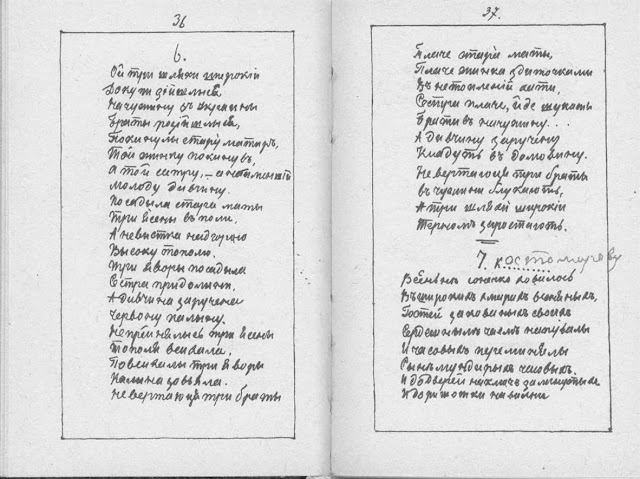 36
6.
Ой три шляхи широкіи
Докупи зійшлыся
На чужыну съ Украины
Браты розійшлыся,
Покинулы стару матирь,
Той жинку покинувъ,
А той сестру, – а наименшій
Молоду дивчину.
Посадыла стара маты
Три ясены въ поли.
А невистка посадыла
Высоку тополю.
Три яворы посадыла
Сестра при долыни,
А дивчина заручена
Червону калыну.
Непрійнялысь три ясены
Тополя всихала,
Повсихалы три яворы
Калына зовъяла.
Не вертаюця три браты
37.
Плаче стара маты,
Плаче жинка з диточками
Въ нетопленій хати,
Сестра плаче, йде шукать
Братив на чужину...
А дивчину заручену
Кладуть въ домовину.
Не вертаюця три браты
въ чужини блукають,
А три шляхи широкіи
Терномъ заростають.
7. Костомарову
Весенне сонечко ховалось
Въ широкихъ хмарахъ весняныхъ,
Гостей закованыхъ своихъ
Сердешнымъ чаемъ напувалы
И часовыхъ переминялы
Синемундирыхъ часовыхъ.
И до дверей на ключъ замкнутыхъ
И до ришотки на викни